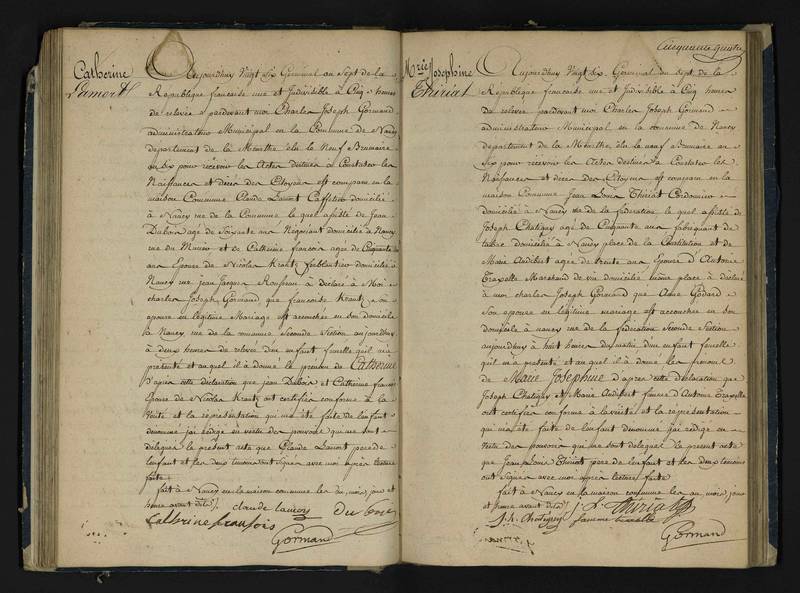 Catherine
Aujourdhuy Vingt Six Germinal an Sept de la
République française une et Indivisible à Cinq heures
de relevée pardevant moi Charles Joseph Gormand
administrateur Municipal en la Commune de Nancy
departement de la Meurthe élu le Neuf Brumaire
an Six pour recevoir les Actes destinés à Constater les
Naissances et décès des Citoyens est comparu en la
maison Commune Claude domicilié
à Nancy rue de la Commune le quel assisté de Jean
Dubois agé de Soixante ans Négociant domicilié à Nancy
rue du Musée et de Catherine françois agée de Cinquante
ans Epouse de Nicolas Krantz ferblantier domicilié à
Nancy rue jean Jacques Rousseau à déclaré à Moi
charles Joseph Gormand que françoise Krantz son
epouse en légitime Mariage est accouchée en son domicile
à Nancy rue de la commune Seconde Section aujourdhuy
à deux heures de relevée d'un enfant femelle qu'il m'a
présenté et auquel il à donné le prénom de Catherine
D'après cette déclaration que jean Dubois et Catherine françois
Epouse de Nicolas Krantz ont certifiée conforme à la
Vérité et la représentation qui m'a été faite de l'enfant
denommé j'ai rédigé en vertu des pouvoirs qui me sont
délégués le présent acte que Claude pere de
l'enfant et les deux temoins ont signés avec moi après lecture
faite
fait à Nancy en la maison commune les an, mois, jour et
heure avant dits
Catherine françois
Gormand
Mrie Josephine
Thiriat
Aujourdhuy Vingt Six Germinal an Sept de la
République française une et Indivisible à Cinq heures
de relevée pardevant moi Charles Joseph Gormand
administrateur Municipal en la commune de Nancy
departement de la Meurthe élu le neuf Brumaire an
Six pour recevoir les Actes destinés à Constater les
Naissances et décès des Citoyens est comparu en la
maison Commune Jean Louis Thiriat Cordonnier
domicilié à Nancy rue de la fédération le quel assisté de
Joseph Chatigny agé de Cinquante ans fabriquant de
tabac domicilié à Nancy place de la Constitution et de
Marie Audibert agée de trente ans Epouse d'Antoine
Trapelle Marchand de vin domicilié même place à déclaré
à moi charles Joseph Gormand que Anne Godard
Son epouse en légitime mariage est accouchée en son
domicile à nancy rue de la fédération Seconde Section
aujourdhuy à huit heures du matin d'un enfant femelle
qu'il m'a présenté et auquel il à donné les prénoms
de Marie Josephine d'après cette déclaration que
Joseph Chatigny et Marie Audibert femme d'Antoine Trapelle
ont certifiée conforme à la vérité et la représentation
qui m'a été faite de l'enfant denommé j'ai rédigé en
Vertu des pouvoirs qui me sont délégués le présent acte
que Jean Louis Thiriat pere de l'enfant et les deux temoins
ont Signés avec moi après lecture faite
fait à Nancy en la maison commune les an, mois, jour
et heure avant dits
J. L. Thiriat
femme
Gormand